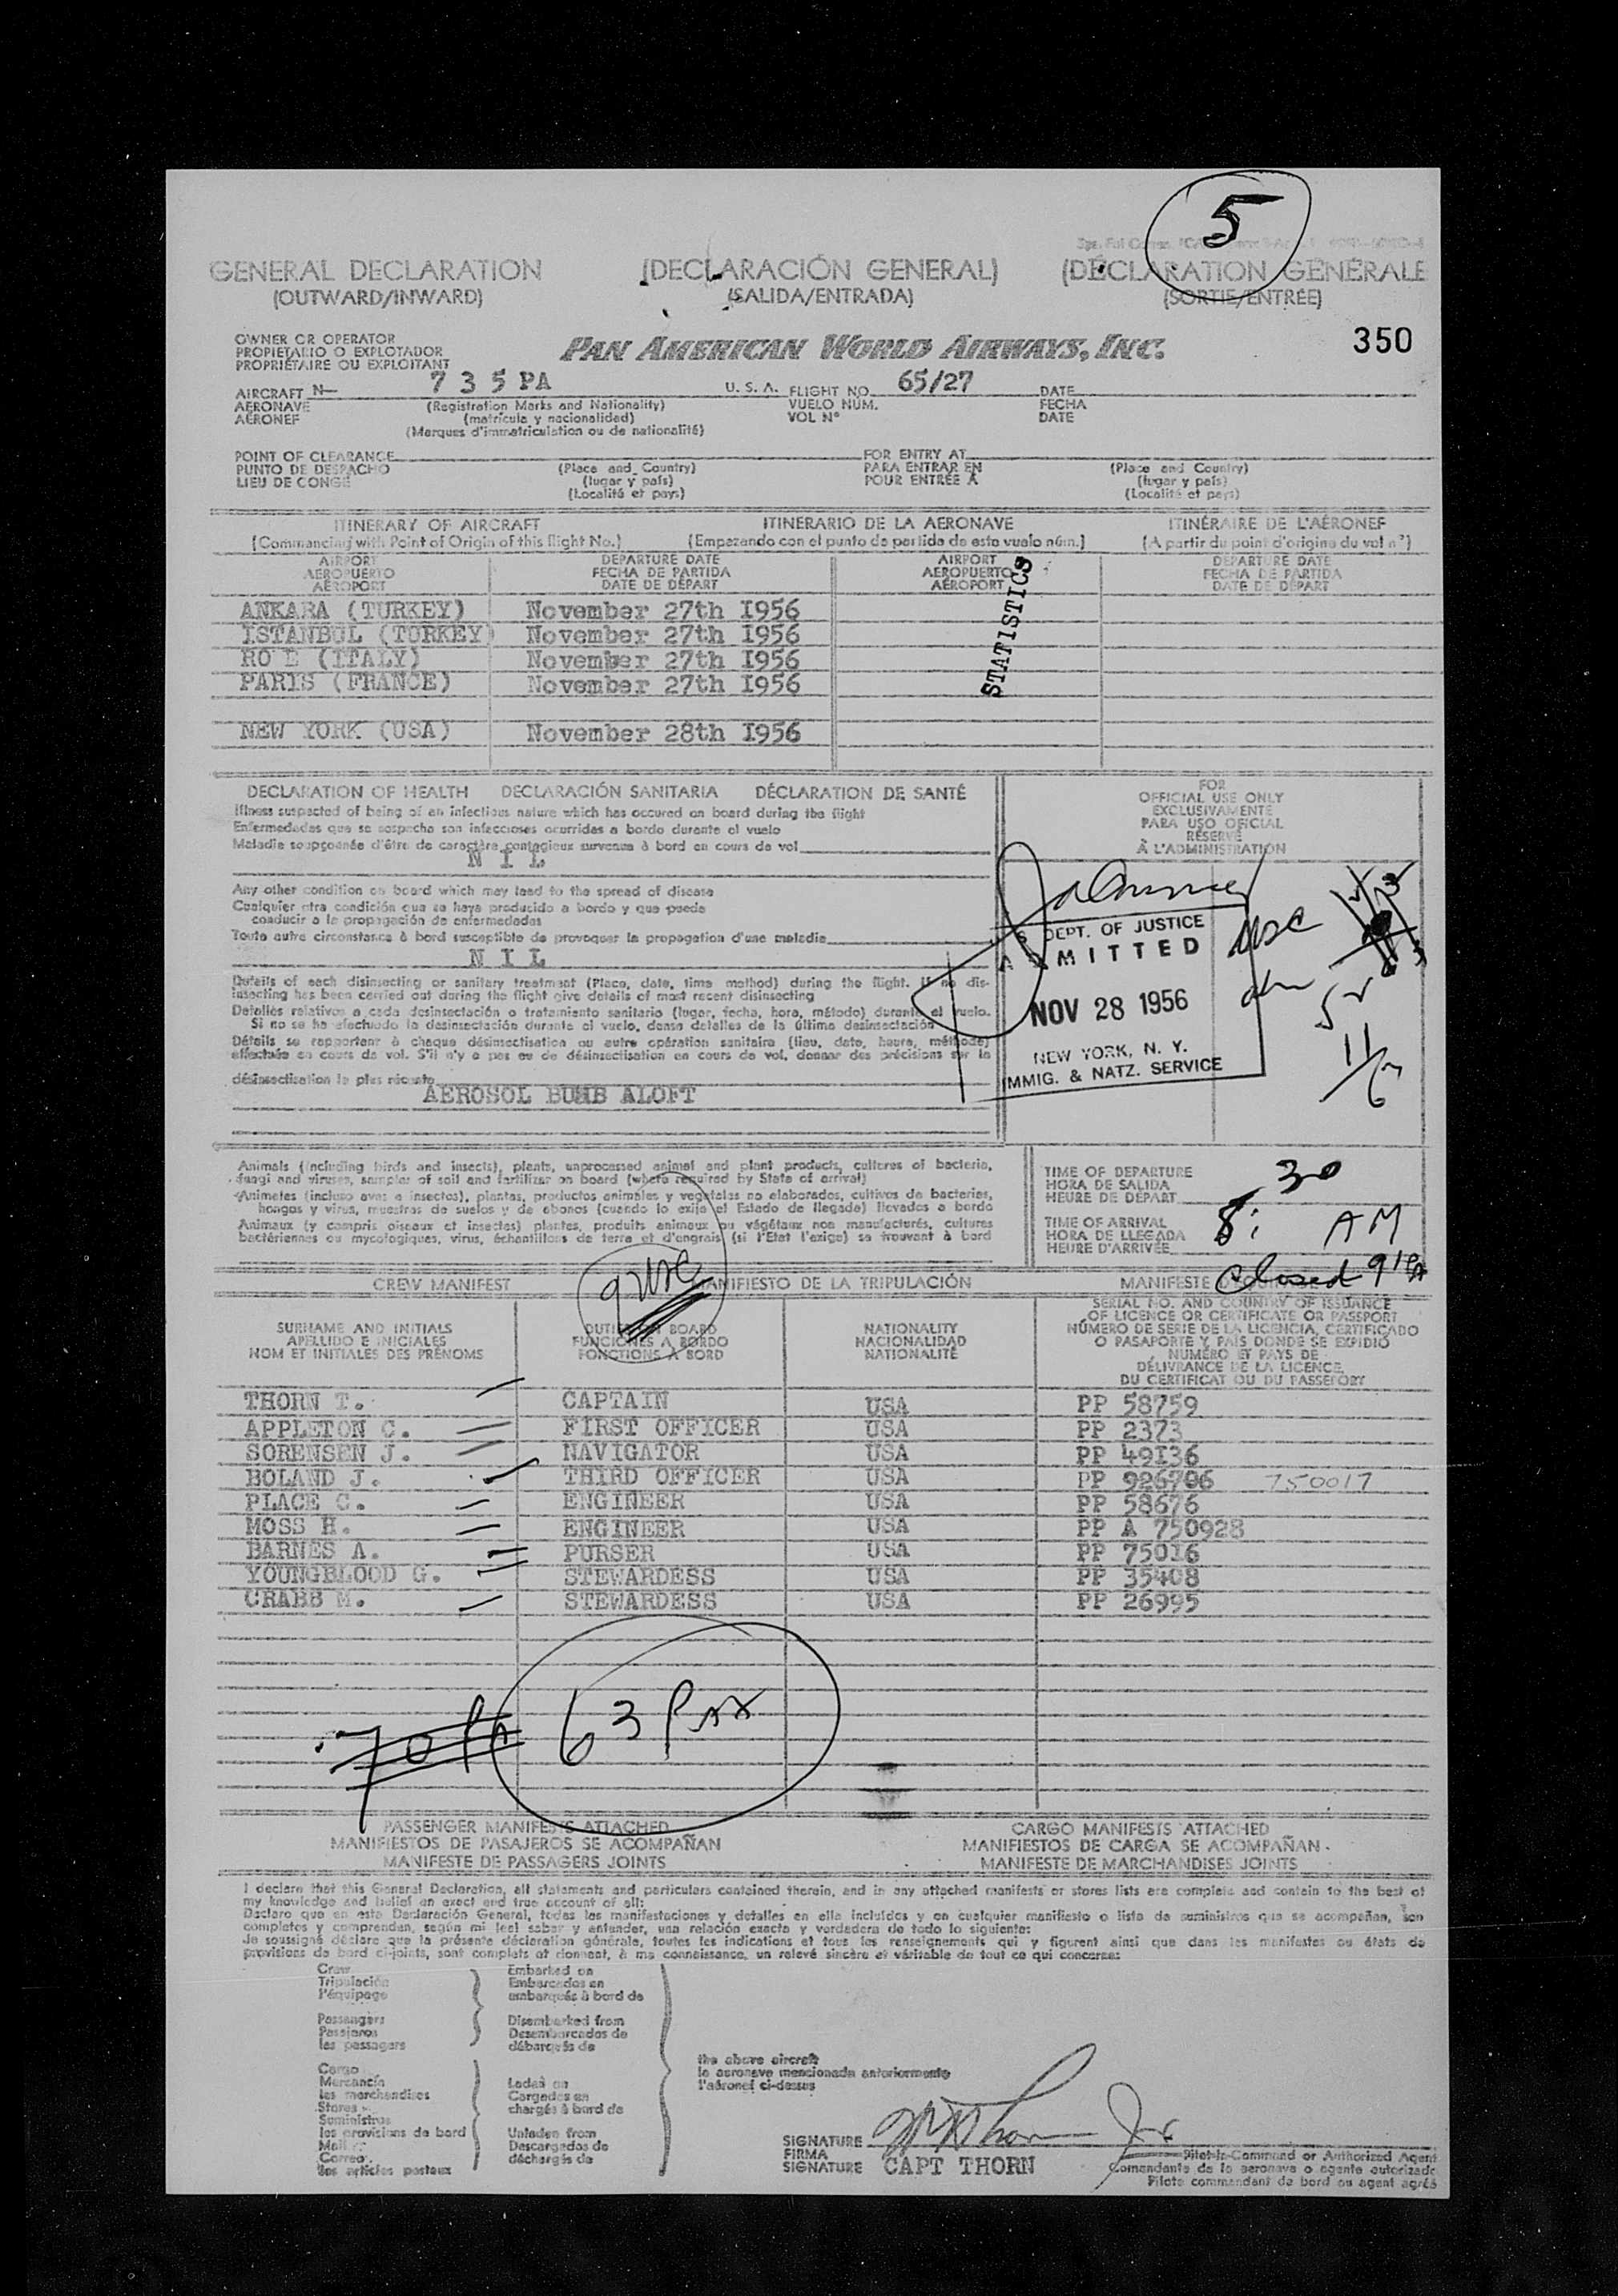 5
GENERAL DECLARATION (DECLARACIÓN GENERAL) (DÉCLARATION GÉNÉRALE
(OUTWARD/INWARD) (SALIDA/ENTRADA) (SORTIE/ENTRÉE)
OWNER OR OPERATOR
PROPIETARIO O EXPLOTADOR
PROPRIÉTAIRE OU EXPLOITANT
PAN AMERICAN WORLD AIRWAYS, INC.
350
AIRCRAFT N— 7 3 5 PA U. S. A. FLIGHT NO. 65/27 DATE
AERONAVE (Registration Marks and Nationality) VUELO NÚM. FECHA
AÉRONEF (matrícula y nacionalidad) VOL Nº DATE
(Marques d'immatriculation ou de nationalité)
POINT OF CLEARANCE FOR ENTRY AT
PUNTO DE DESPACHO (Place and Country) PARA ENTRAR EN (Place and Country)
LIEU DE CONGÉ (lugar y país) POUR ENTRÉE À (lugar y país)
(Localité et pays) (Localité et pays)
ITINERARY OF AIRCRAFT ITINERARIO DE LA AERONAVE ITINÉRAIRE DE L'AÉRONEF
(Commencing with Point of Origin of this flight No.) (Empezando con el punto de partida de este vuelo núm.) (A partir du point d'origine du vol nº)
AIRPORT DEPARTURE DATE AIRPORT DEPARTURE DATE
AEROPUERTO FECHA DE PARTIDA AEROPUERTO FECHA DE PARTIDA
AÉROPORT DATE DE DÉPART AÉROPORT DATE DE DÉPART
STATISTICS
ANKARA (TURKEY) November 27th I956
ISTANBUL (TURKEY) November 27th I956
RO E (ITALY) November 27th I956
PARIS (FRANCE) November 27th I956
NEW YORK (USA) November 28th I956
DECLARATION OF HEALTH DECLARACIÓN SANITARIA DÉCLARATION DE SANTÉ
Illness suspected of being of an infectious nature which has occured on board during the flight
Enfermedades que se sospecha son infecciosas ocurridas a bordo durante el vuelo
Maladie soupçonnée d'être de caractère contagieux survenue à bord en cours de vol
N I L
Any other condition on board which may lead to the spread of disease
Cualquier otra condición que se haya producido a bordo y que puede
conducir a la propagación de enfermedades
Toute autre circonstance à bord susceptible de provoquer la propagation d'une maladie
N I L
Details of each disinsecting or sanitary treatment (Place, date, time method) during the flight. If no dis-
insecting has been carried out during the flight give details of most recent disinsecting
Detalles relativos a cada desinsectación o tratamiento sanitario (lugar, fecha, hora, método) durante el vuelo.
Si no se ha efectuado la desinsectación durante el vuelo, dense detalles de la última desinsectación
Détails se rapportant à chaque désinsectisation ou autre opération sanitaire (lieu, date, heure, méthode)
effectuée en cours de vol. S'il n'y a pas eu de désinsectisation en cours de vol, donner des précisions sur la
désinsectisation la plus récente
AEROSOL BUMB ALOFT
FOR
OFFICIAL USE ONLY
EXCLUSIVAMENTE
PARA USO OFICIAL
RÉSERVÉ
À L'ADMINISTRATION
S DEPT. OF JUSTICE
A MITTED
NOV 28 1956
NEW YORK, N. Y.
IMMIG. & NATZ. SERVICE
USC
Animals (including birds and insects), plants, unprocessed animal and plant products, cultures of bacteria,
fungi and viruses, samples of soil and fertilizer on board (where required by State of arrival)
Animales (incluso aves e insectos), plantas, productos animales y vegetales no elaborados, cultivos de bacterias,
hongos y virus, muestras de suelos y de abonos (cuando lo exija el Estado de llegada) llevados a bordo
Animaux (y compris oiseaux et insectes) plantes, produits animaux ou végétaux non manufacturés, cultures
bactériennes ou mycologiques, virus, échantillons de terre et d'engrais (si l'Etat l'exige) se trouvant à bord
TIME OF DEPARTURE
HORA DE SALIDA
HEURE DE DÉPART
TIME OF ARRIVAL
HORA DE LLEGADA
HEURE D'ARRIVÉE
8: 30 AM
closed 9
9 USC
CREW MANIFEST MANIFIESTO DE LA TRIPULACIÓN MANIFESTE
SURNAME AND INITIALS
APELLIDO E INICIALES
NOM ET INITIALES DES PRÉNOMS
DUTIES ON BOARD
FUNCIONES A BORDO
FONCTIONS À BORD
NATIONALITY
NACIONALIDAD
NATIONALITÉ
SERIAL NO. AND COUNTRY OF ISSUANCE
OF LICENCE OR CERTIFICATE OR PASSPORT
NÚMERO DE SERIE DE LA LICENCIA, CERTIFICADO
O PASAPORTE Y PAÍS DONDE SE EXPIDIÓ
NUMÉRO ET PAYS DE
DÉLIVRANCE DE LA LICENCE,
DU CERTIFICAT OU DU PASSEPORT
THORN T. CAPTAIN USA PP 58759
APPLETON C. FIRST OFFICER USA PP 2373
SORENSEN J. NAVIGATOR USA PP 49I36
BOLAND J. THIRD OFFICER USA PP 926706 750017
PLACE C. ENGINEER USA PP 58676
MOSS H. ENGINEER USA PP A 750928
BARNES A. PURSER USA PP 750I6
YOUNGBLOOD G. STEWARDESS USA PP 35408
CRABB M. STEWARDESS USA PP 26995
70 63 Pax
PASSENGER MANIFESTS ATTACHED CARGO MANIFESTS ATTACHED
MANIFIESTOS DE PASAJEROS SE ACOMPAÑAN MANIFIESTOS DE CARGA SE ACOMPAÑAN
MANIFESTE DE PASSAGERS JOINTS MANIFESTE DE MARCHANDISES JOINTS
I declare that this General Declaration, all statements and particulars contained therein, and in any attached manifests or stores lists are complete and contain to the best of
my knowledge and belief an exact and true account of all:
Declaro que en esta Declaración General, todas las manifestaciones y detalles en ella incluidos y en cualquier manifiesto o lista de suministros que se acompañan, son
completos y comprenden, según mi leal saber y entender, una relación exacta y verdadera de todo lo siguiente:
Je soussigné déclare que la présente déclaration générale, toutes les indications et tous les renseignements qui y figurent ainsi que dans les manifestes ou états de
provisions de bord ci-joints, sont complets et donnent, à ma connaissance, un relevé sincère et véritable de tout ce qui concerne:
Crew
Tripulación
l'équipage
Passengers
Pasajeros
les passagers
Embarked on
Embarcados en
embarqués à bord de
Disembarked from
Desembarcados de
débarqués de
Cargo
Mercancía
les marchandises
Stores
Suministros
les provisions de bord
Mail
Correo
les articles postaux
Laded on
Cargados en
chargés à bord de
Unladen from
Descargados de
déchargés de
the above aircraft
la aeronave mencionada anteriormente
l'aéronef ci-dessus
SIGNATURE
FIRMA
SIGNATURE CAPT THORN
Pilot-in-Command or Authorized Agent
Comandante de la aeronave o agente autorizado
Pilote commandant de bord ou agent agréé